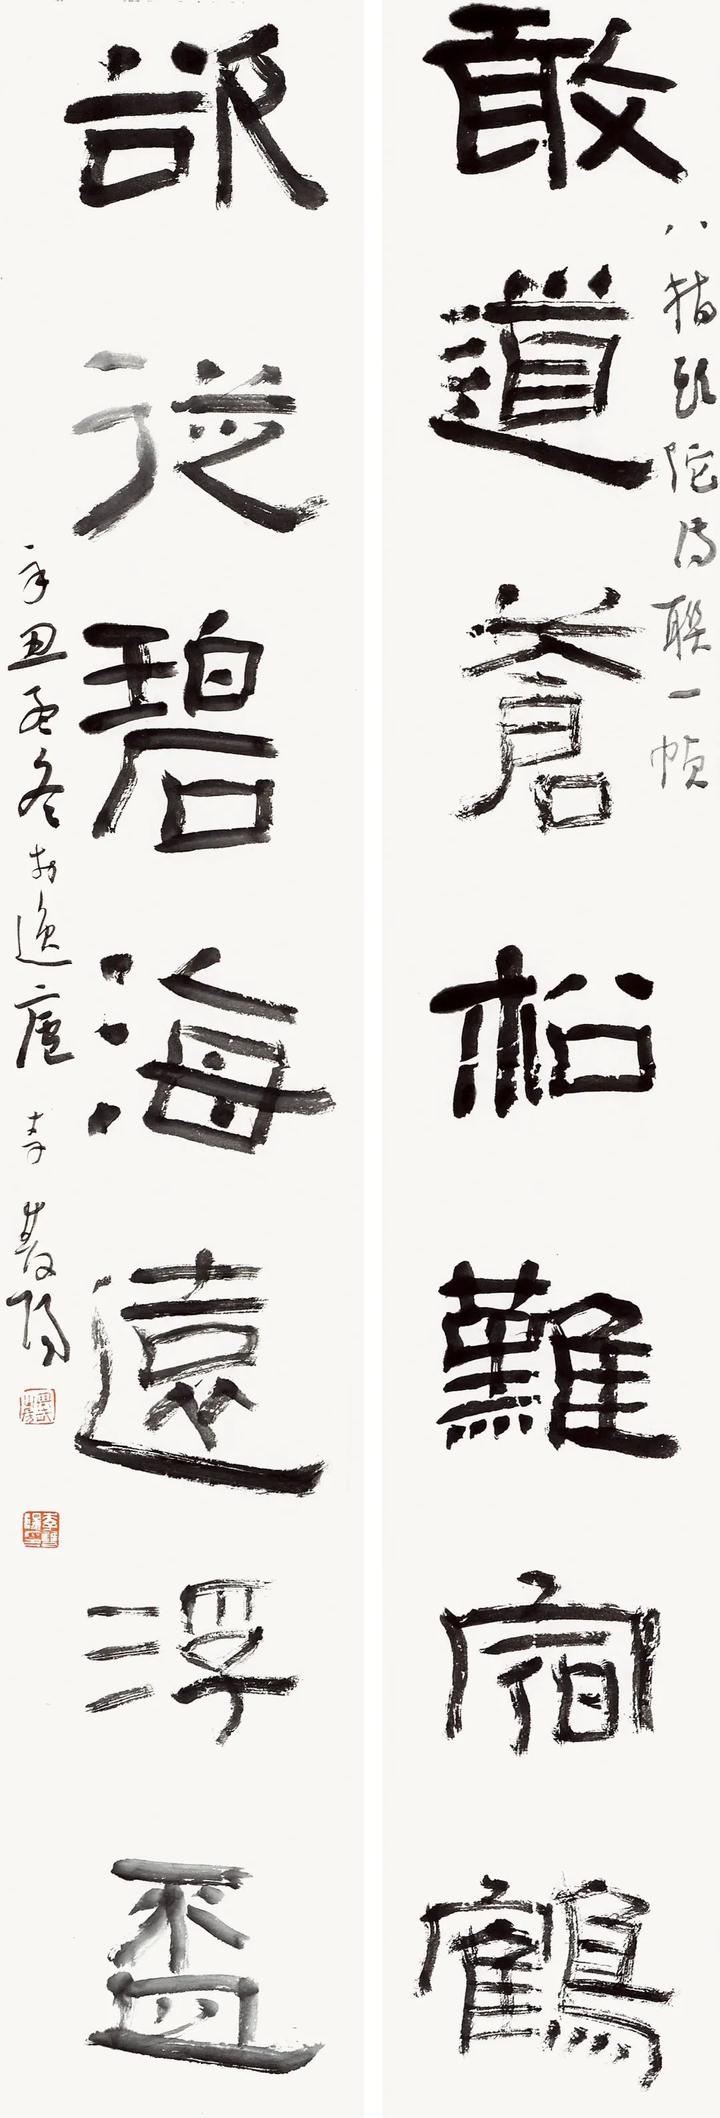 八指頭陀詩聯一幀
敢道蒼松難宿鶴
欲從碧海遠浮盃
辛丑孟冬於逸廬 李雙陽